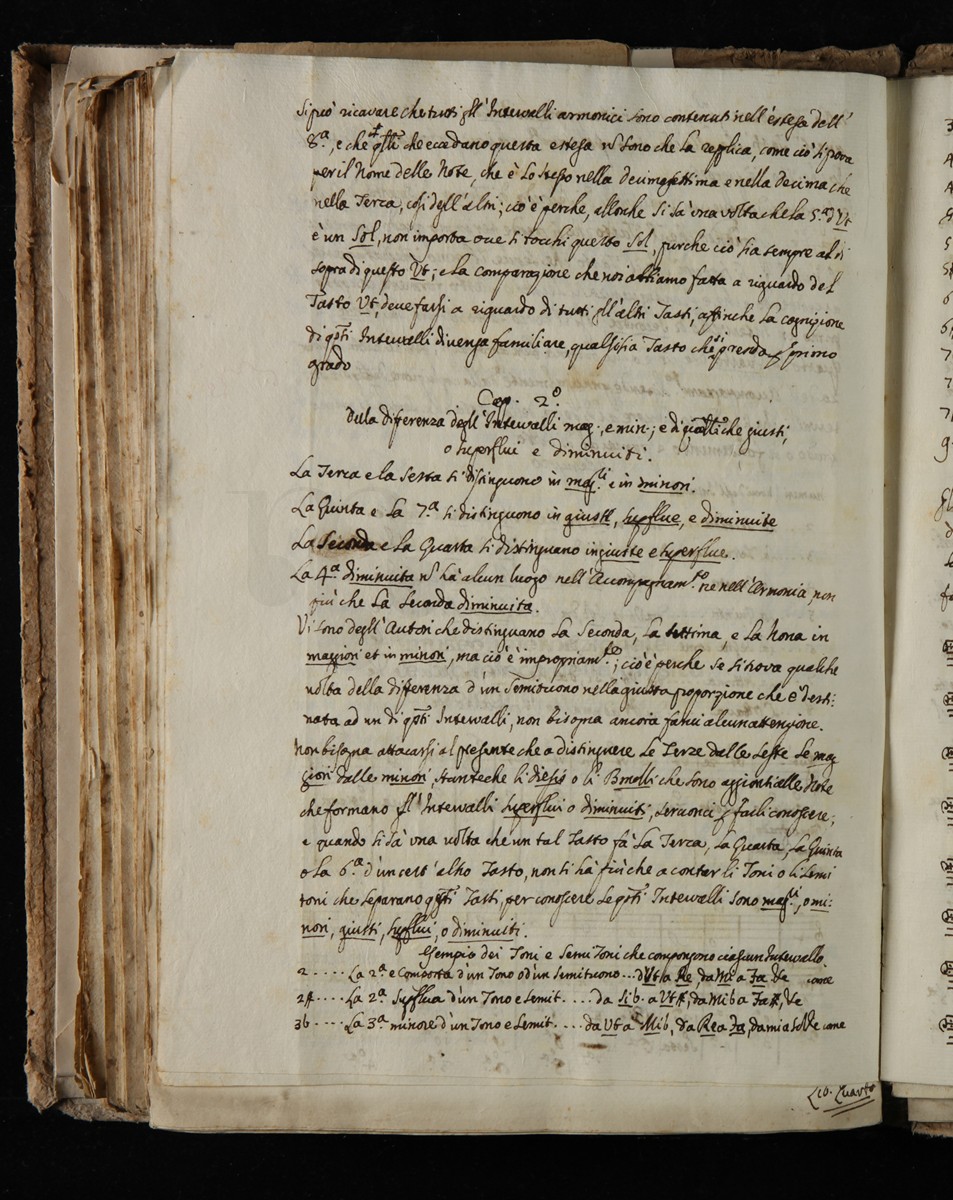 si può ricavare che tutti gl'Intervalli armonici sono contenuti nell'estesa dell'
8.ª, e che qlli che eccedano questa estesa nõ sono che la replica, come ciò si prova
per il Nome delle Note, che è lo stesso nella decimasettima e nella decima che
nella Terca, così degl'altri; ciò è perche, allorche si sà una volta che la 5.ª d'Ut
è un Sol, non importa ove si tocchi questo Sol, purche ciò sia sempre al di
sopra di questo Ut; e la comparazione che noi abbiamo fatta a riguardo del
Tasto Ut, deve farsi a riguardo di tutti gl'altri Tasti, affinche la cognizione
di qsti Intervalli divenga familiare, qualsisia Tasto che si prenda p primo
grado
Cap. 2º
Della differenza degl'Intervalli mag., e min.; e di qlli che giusti,
o superflui e diminuiti.
La Terca e la Sesta si distinguono in mag.li e in minori.
La Quinta e la 7.ª si distinguono in giuste, supflue, e diminuite
La Seconda e la Quarta si distinguano in giuste e superflue.
La 4.ª diminuita nõ hà alcun luogo nell'Accompagnam.to ne nell'Armonia, non
più che la Seconda diminuita.
Vi sono degl'Autori che distinguano la Seconda, la settima, e la Nona in
maggiori et in minori, ma ciò è impropriam.te; ciò è perche se si trova qualche
volta della differenza d'un Semituono nella giusta proporzione che è desti:
nata ad un di qsti Intervalli, non bisogna ancora farvi alcun attenzione.
Non bisogna attacarsi al presente che a distinguere le Terze dalle Seste le mag
giori dalle minori, stante che li diesis o li Bmolli che sono aggionti alle Note
che formano gl'Intervalli superflui o diminuiti, servonci p farli conoscere;
e quando si sà una volta che un tal Tasto fà la Terca, la Quarta, la Quinta
o la 6.ª d'un cert'altro Tasto, non si hà più che a contar li Toni o li Semi
toni che separano qsti Tasti, per conoscere se qsti Intervalli sono mag.ri, o mi:
nori, giusti, supflui, o diminuiti.
Esempio dei Toni e Semi Toni che compongono ciascun Intervallo.
2 ..... La 2.ª e composta d'un Tono o d'un semituono ... d'Ut a Re, da Mi a Fa, &e come
2# ..... La 2.ª Supflua d'un Tono e Semit. .... da Sib. a Ut#, da Mib a Fa#, &e
3b ..... La 3.ª minore d'un Tono e Semit. .... da Ut a Mib, da Re a Fa, da mi a Sol &e come
Lib. Quarto